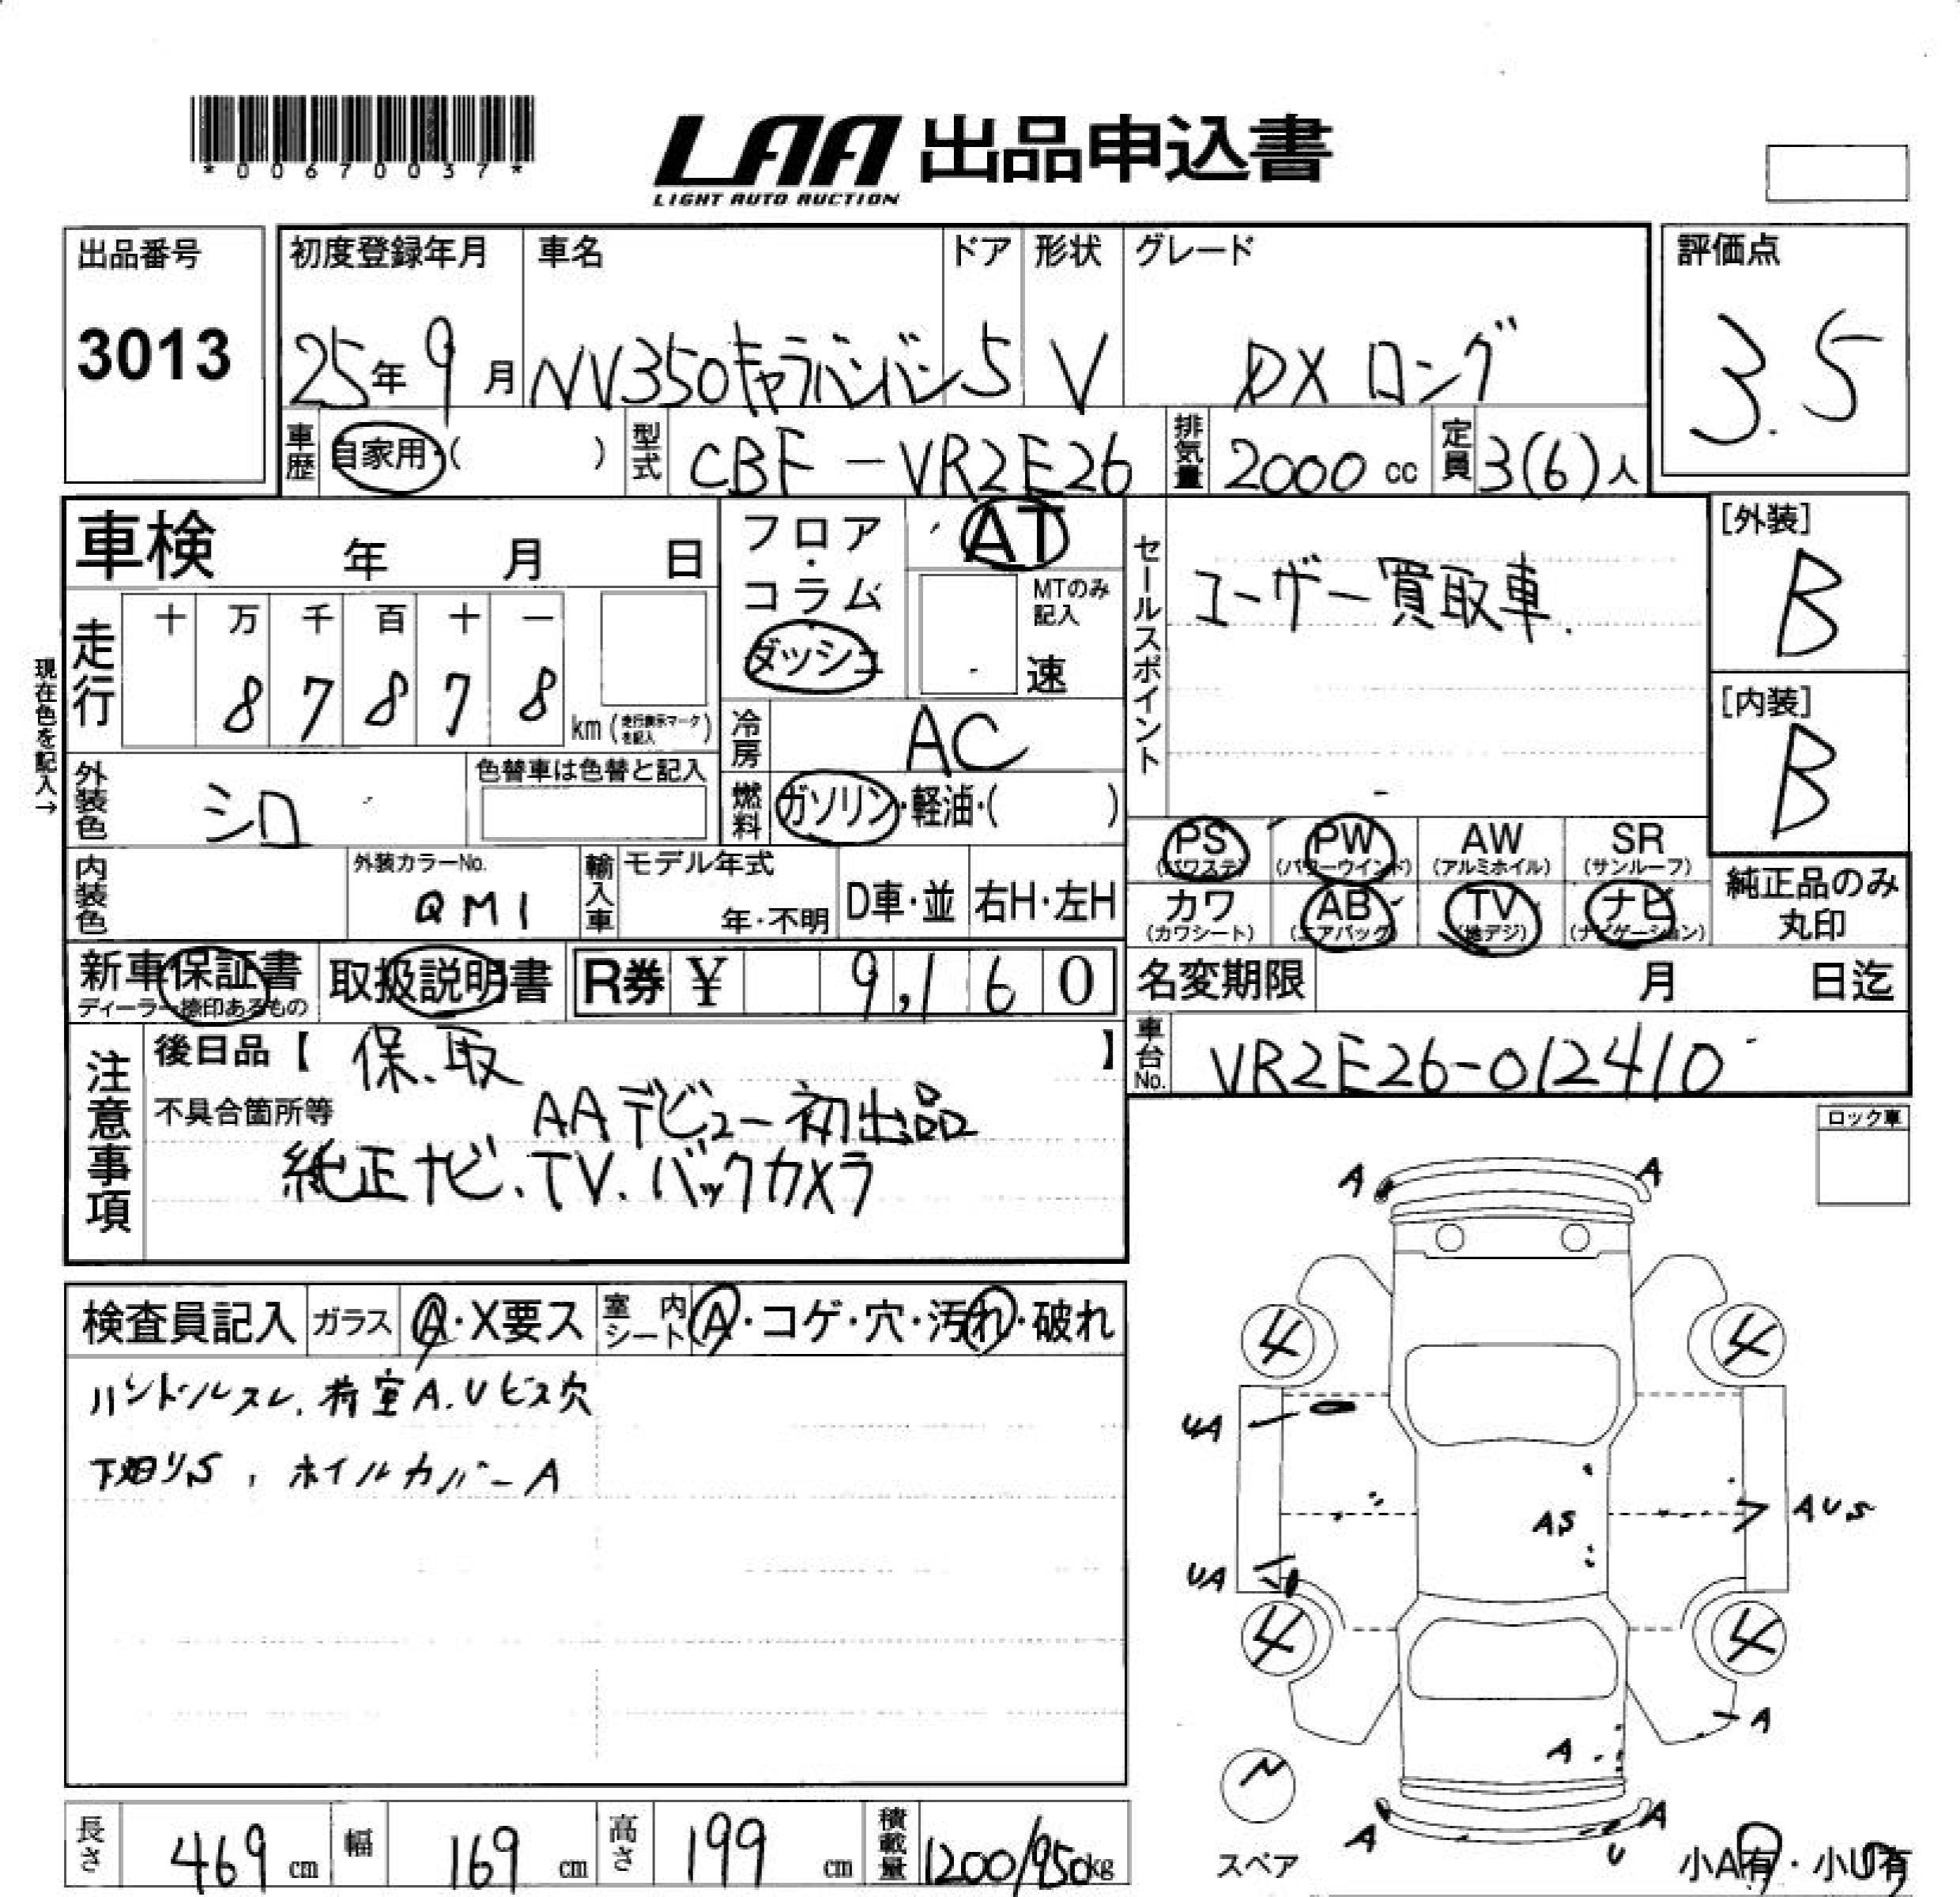 *00670037*
LAA 出品申込書
LIGHT AUTO AUCTION
出品番号
3013
初度登録年月
25年9月
車名
NV350キャラバンバン
ドア
5
形状
V
グレード
DXロング
評価点
3.5
車歴
自家用・( )
型式
CBF-VR2E26
排気量
2000cc
定員
3(6)人
車検 年 月 日
フロア・コラム
ダッシュ
AT
MTのみ記入
速
セールスポイント
ユーザー買取車.
[外装]
B
[内装]
B
現在色を記入→
走行
十 万 千 百 十 一
8 7 8 7 8
km (走行表示マークを記入)
冷房
AC
外装色
シロ
色替車は色替と記入
燃料
ガソリン・軽油・( )
PS
(パワステ)
PW
(パワーウインド)
AW
(アルミホイル)
SR
(サンルーフ)
カワ
(カワシート)
AB
(エアバッグ)
TV
(地デジ)
ナビ
(ナビゲーション)
純正品のみ
丸印
内装色
外装カラーNo.
QM1
輸入車
モデル年式
年・不明
D車・並
右H・左H
新車保証書
ディーラー捺印あるもの
取扱説明書
R券 ¥ 9,160
名変期限 月 日迄
車台No.
VR2E26-012410
注意事項
後日品【 保.取 】
不具合箇所等
AAデビュー初出品
純正ナビ.TV.バックカメラ
ロック車
検査員記入
ガラス
A・X要ス
室内シート
A・コゲ・穴・汚れ・破れ
ハンドルスレ.荷室A.Uビス穴
下廻りS, ホイルカバーA
A A
4 4
UA
AS
AUS
UA
4 4
A
A
A A
U
スペア
小A有・小U有
長さ
469cm
幅
169cm
高さ
199cm
積載量
1200/950kg